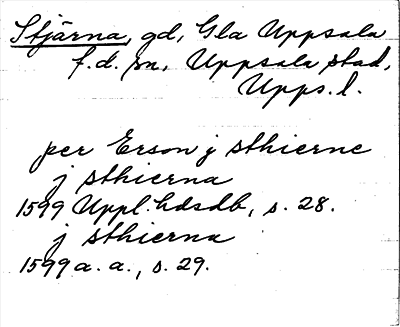 Stjärna, gd, Gla Uppsala
f.d. sn, Uppsala stad,
Upps. l.
per Erson j sthierne
j sthierna
1599 Uppl. hdsdb, s. 28.
j sthierna
1599 a. a., s. 29.